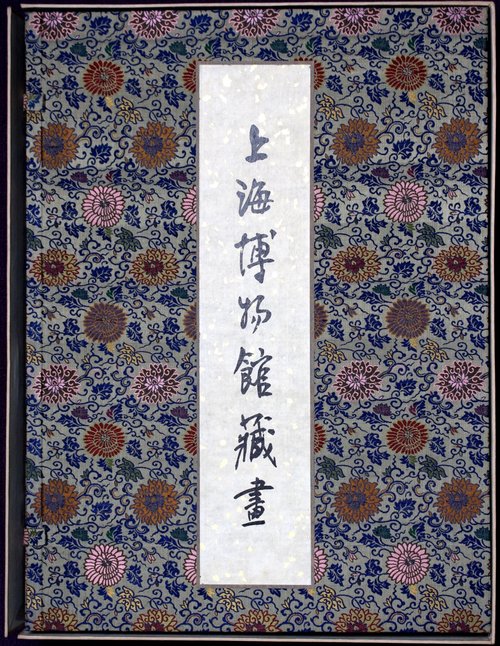 上海博物館藏畫